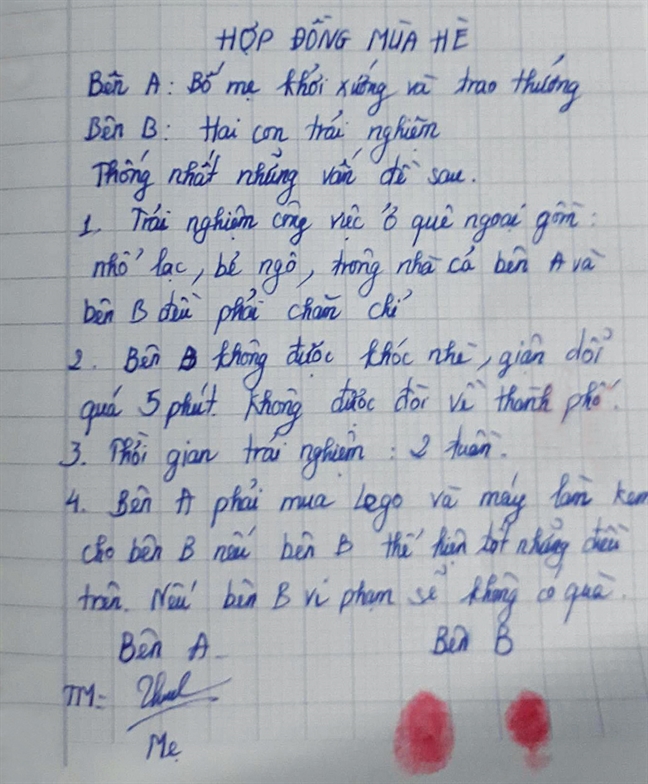 HỢP ĐỒNG MÙA HÈ
Bên A: Bố mẹ khởi xướng và trao thưởng
Bên B: Hai con trải nghiệm
Thống nhất những vấn đề sau.
1. Trải nghiệm công việc ở quê ngoại gồm:
nhổ lạc, bẻ ngô, trông nhà cả bên A và
bên B đều phải chăm chỉ
2. Bên B không được khóc nhè, giận dỗi
quá 5 phút. Không được đòi về thành phố.
3. Thời gian trải nghiệm: 2 tuần.
4. Bên A phải mua Lego và máy làm kem
cho bên B nếu bên B thể hiện tốt những điều
trên. Nếu bên B vi phạm sẽ không có quà.
Bên A Bên B
TM:
Mẹ